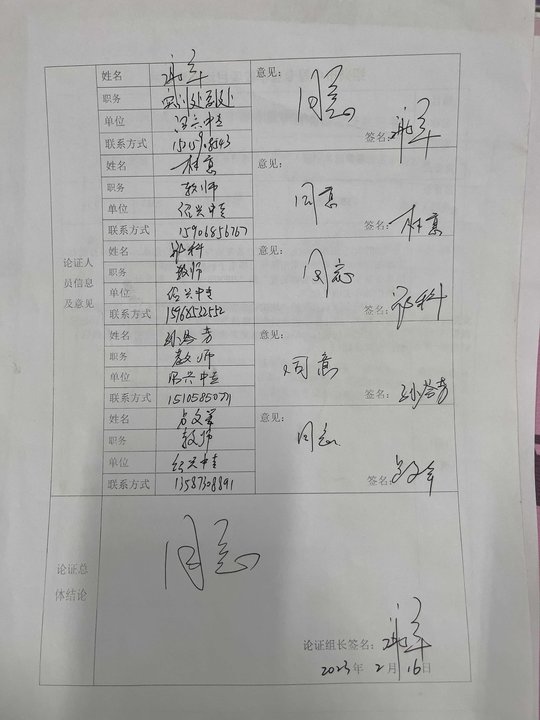 姓名 谢军
意见：同意
职务
单位 绍兴中专
签名：谢军
联系方式
姓名 林意
意见：同意
职务 教师
单位 绍兴中专
签名：林意
联系方式 15906856767
姓名 祁科
意见：同意
职务 教师
单位 绍兴中专
签名：祁科
联系方式 15968522552
姓名
意见：同意
职务 教师
单位 绍兴中专
签名：
联系方式
姓名
意见：同意
职务 教师
单位 绍兴中专
签名：
联系方式 13587308891
论证人
员信息
及意见
论证总
体结论
同意
论证组长签名：谢军
2023年 2月 16日